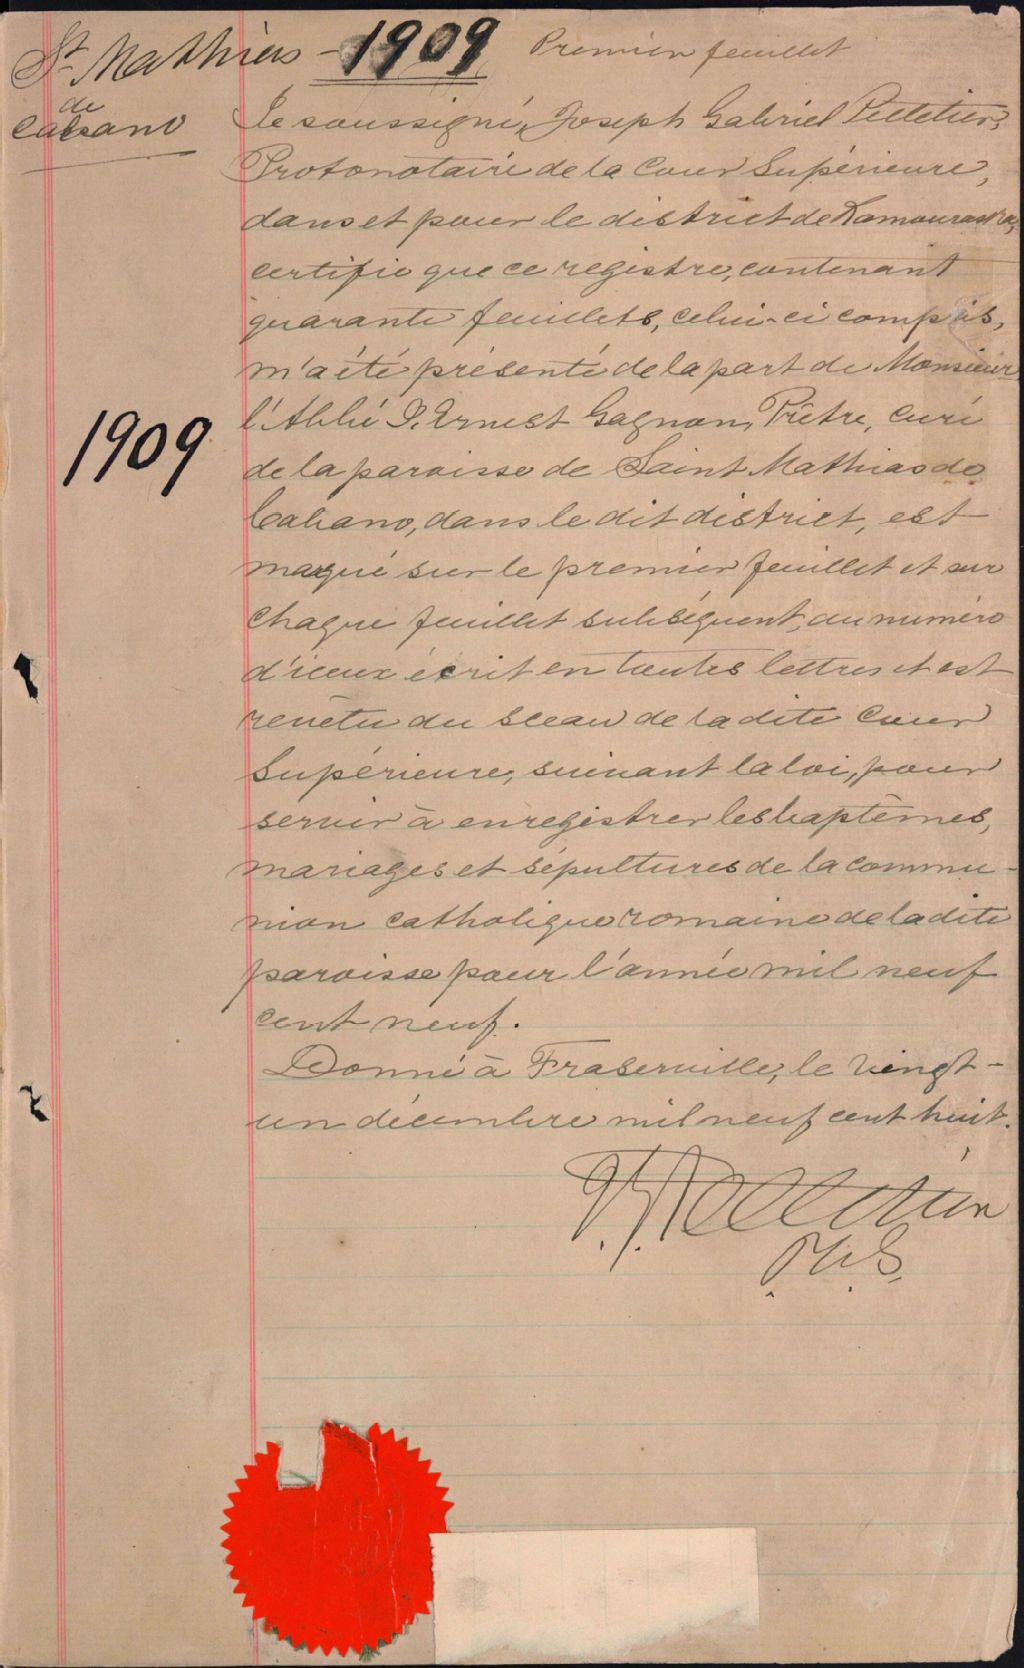 St Mathias - 1909 Premier feuillet
de
Cabano
Je soussigné, Joseph Gabriel Pelletier,
Protonotaire de la Cour Supérieure,
dans et pour le district de Kamouraska,
certifie que ce registre, contenant
quarante feuillets, celui-ci compris,
m'a été présenté de la part de Monsieur
l'Abbé J. Ernest Gagnon, Prêtre, curé
1909
de la paroisse de Saint Mathias de
Cabano, dans le dit district, est
marqué sur le premier feuillet et sur
chaque feuillet subséquent, du numéro
d'iceux écrit en toutes lettres et est
revêtu du sceau de la dite Cour
Supérieure, suivant la loi, pour
servir à enregistrer les baptêmes,
mariages et sépultures de la commu-
nion catholique romaine de la dite
paroisse pour l'année mil neuf
cent neuf.
Donné à Fraserville, le vingt-
un décembre mil neuf cent huit.
J. G. Pelletier
P.C.S.